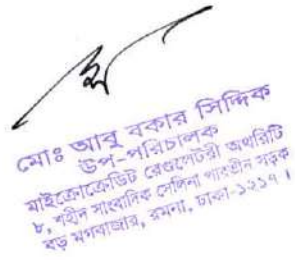 মোঃ আবু বকার সিদ্দিক
উপ-পরিচালক
মাইক্রোক্রেডিট রেগুলেটরী অথরিটি
৮, শহীদ সাংবাদিক সেলিনা পারভীন সড়ক
বড় মগবাজার, রমনা, ঢাকা-১২১৭ ।